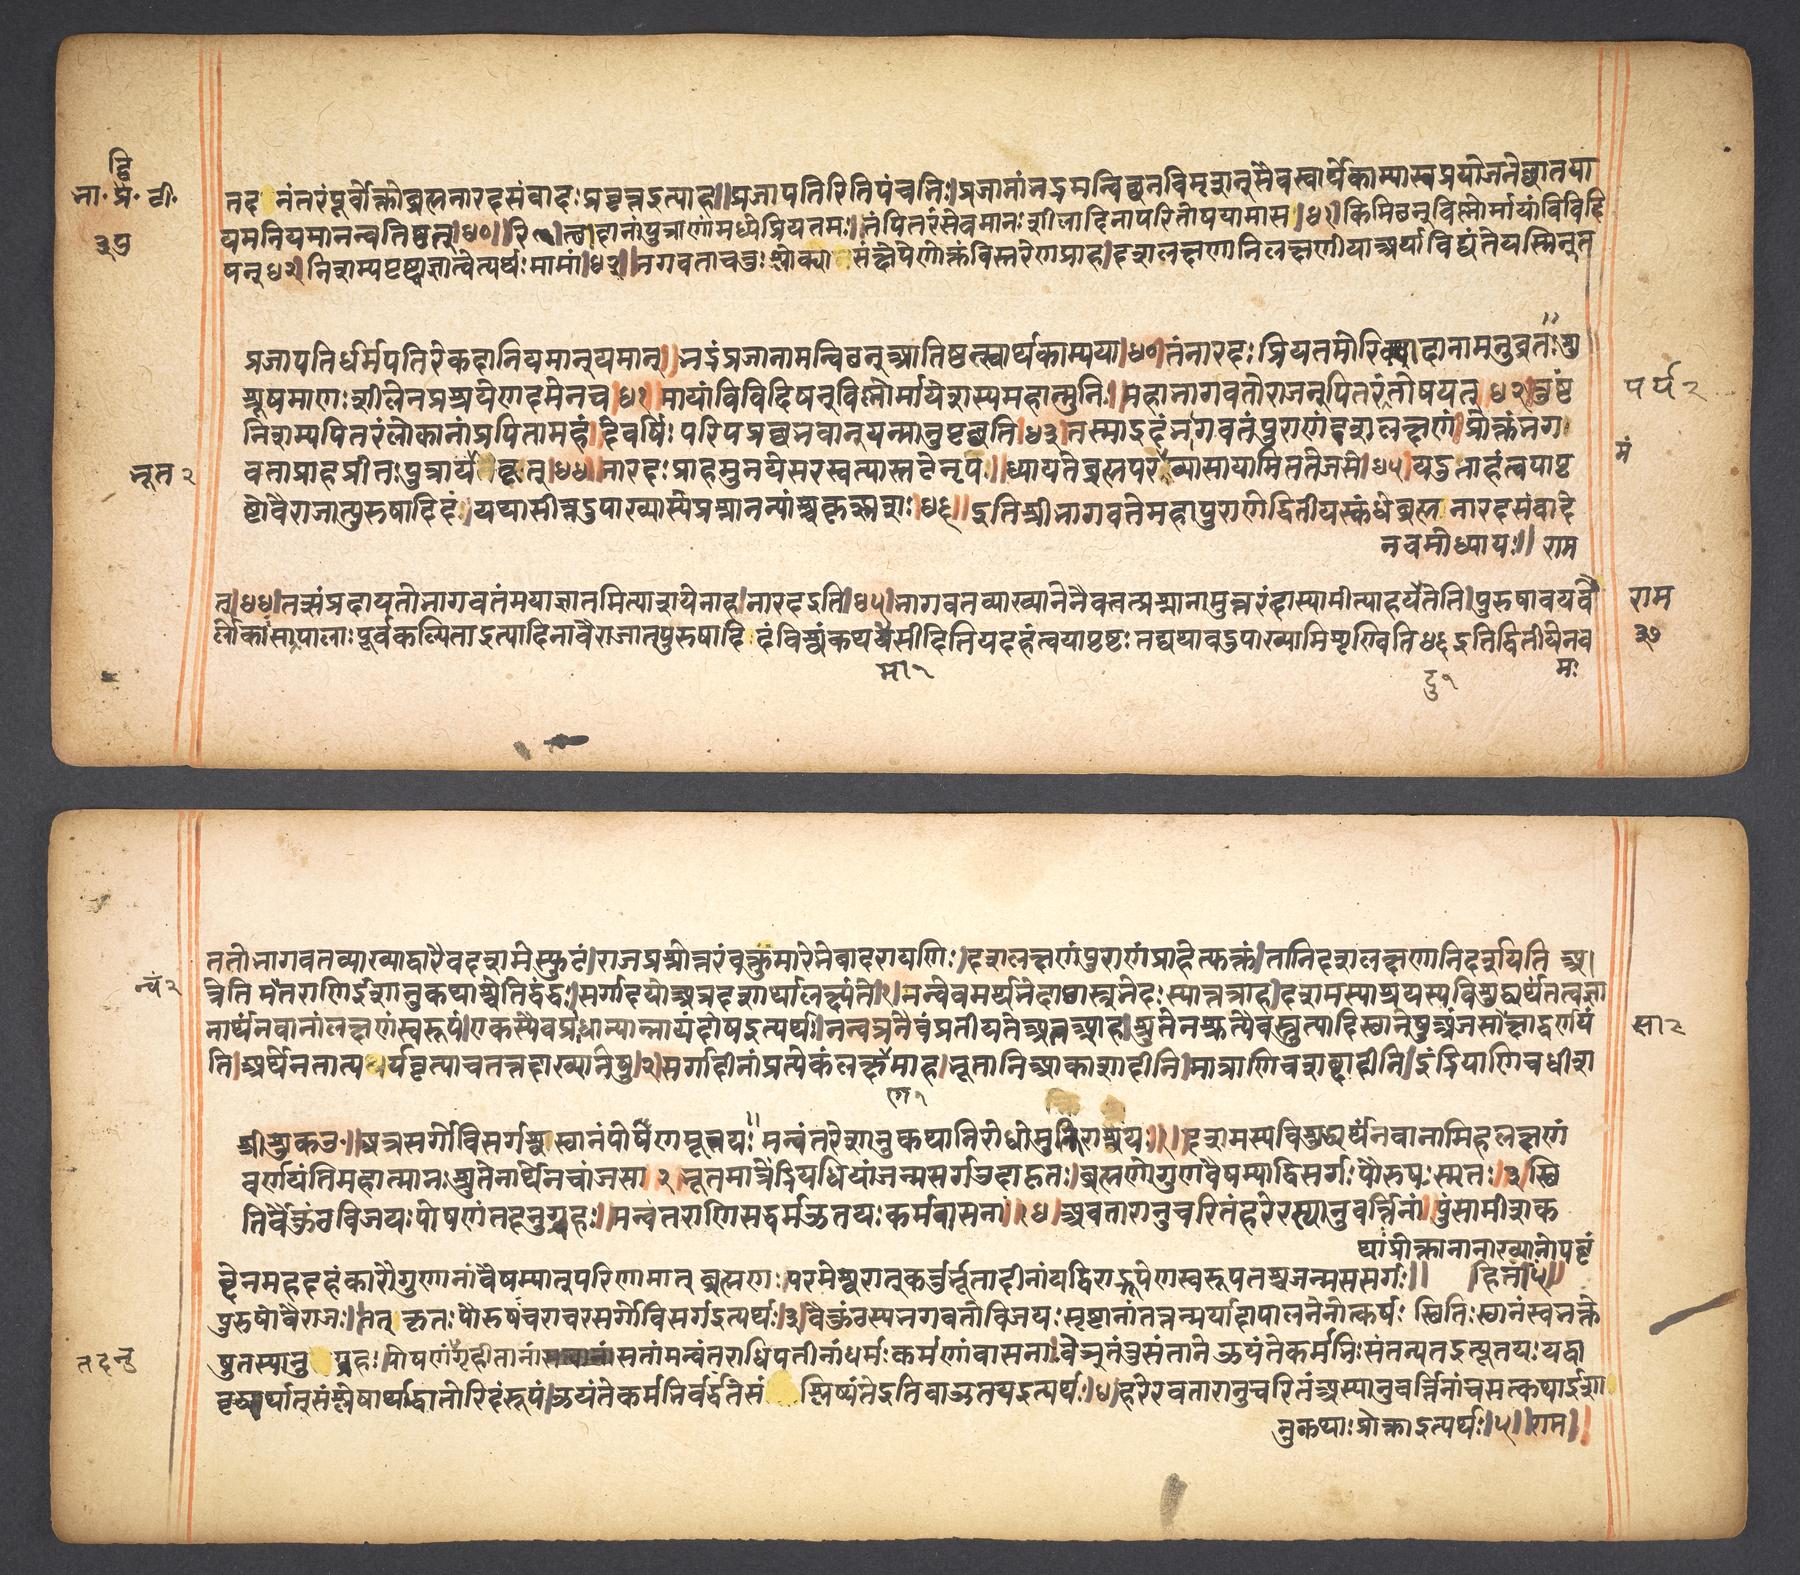 द्वि
भा॰ प्र॰ टी॰
३७
तद नंतरं पूर्वोक्तो ब्रह्मनारदसंवादः प्रवृत्तइत्याह॥ प्रजापतिरिति पंचभिः। प्रजानां भद्रमन्विच्छन्
यमनियमानन्वतिष्ठत्॥४०॥ दानां पुत्राणां मध्ये प्रियतमः। तं पितरं सेवमानः शीलादिना परितोषयामास।४१। किमिच्छन् विष्णोर्मायां विविदि
षन् ४२। निशम्य दृष्ट्वा ज्ञात्वेत्यर्थः मामां।४३॥ भगवता संक्षेपेणोक्तं विस्तरेण प्राह। दशलक्षणानि लक्षणीया अर्था विद्यंते यस्मिन् त
प्रजापतिर्धर्मपतिरेकदा नियमान् यमान्॥ भद्रं प्रजानामन्विच्छन् आतिष्ठत्स्वार्थकाम्यया।४०। तं नारदः प्रियतमो रिक्थादानामनुव्रतः शु
श्रूषमाणः शीलेन प्रश्रयेण दमेन च।४१। मायां विविदिषन् विष्णोर्मायेशस्य महामुनिः। महाभागवतो राजन् पितरं तोषयत् ४२। तुष्टं
पर्य २
निशम्य पितरं लोकानां प्रपितामहं। देवर्षिः परिपप्रच्छ भवान् यन्मानुपृच्छति।४३। तस्माइदं भागवतं पुराणं दशलक्षणं। प्रोक्तं भग
मं
वता प्राह प्रीतः पुत्राय भूतकृत्।४४॥ नारदः प्राह मुनये सरस्वत्यास्तटे नृप॥ ध्यायते ब्रह्म परं व्यासायामिततेजसे।४५। यदुताहं त्वया पृ
भूत २
ष्टो वैराजात्पुरुषादिदं। यथासीत्तदुपाख्यास्ये प्रश्नानन्यांश्च कृत्स्नशः।४६॥ इति श्रीभागवते महापुराणे द्वितीयस्कंधे ब्रह्मनारदसंवादे
नवमोध्यायः॥ राम
त्।४४। तत्संप्रदायतो भागवतं मया ज्ञातमित्याशयेनाह। नारदइति।४५। भागवतव्याख्यानेनैव त्वत्प्रश्नानामुत्तरं दास्यामीत्याह यदेतेति। पुरुषावयवै
र्लोकाः सपालाः पूर्वकल्पिता इत्यादिना वैराजात्पुरुषादि दं विश्वं कथमासीदिति यदहं त्वया पृष्टः तद्यथावदुपाख्यामि शृण्विति ४६ इति द्वितीये नव
मः
राम
३७
मा १
दु १
ततो भागवतव्याख्याद्वारैव दशमे स्फुटं। राजप्रश्नोत्तरं वक्तुमारेभे बादरायणिः। दशलक्षणं पुराणं प्राहेत्युक्तं। तानि दशलक्षणानि दर्शयति अ।
न्वं २
त्रेति मंतराणि ईशानुकथाश्चेति द्वंद्वः। सर्गादयोऽत्र दशार्था लक्ष्यंते।१। नन्वेवमर्थभेदाच्छास्त्रभेदः स्यात्तत्राह। दशमस्याश्रयस्य विशुद्ध्यर्थं तत्वज्ञा
नार्थं नवानां लक्षणं स्वरूपं। एकस्यैव प्राधान्यान्नायं दोष इत्यर्थः। नन्वत्र नैवं प्रतीयतेऽत आह। श्रुतेन श्रुत्यैव स्तुत्यादिस्थानेषु अंजसा साक्षाद्वर्णयं
सा २
ति। अर्थेन तात्पर्यवृत्त्या च तत्तदाख्यानेषु।२। सर्गादीनां प्रत्येकं लक्षणमाह। भूतानि आकाशादीनि। मात्राणि च शब्दादीनि। इंद्रियाणि च धीश
ण १
श्रीशुकउ॰॥ अत्र सर्गो विसर्गश्च स्थानं पोषणमूतयः मन्वंतरेशानुकथा निरोधो मुक्तिराश्रयः।१। दशमस्य विशुद्ध्यर्थं नवानामिह लक्षणं
वर्णयंति महात्मानः श्रुतेनार्थेन चांजसा २ भूतमात्रेंद्रियधियां जन्म सर्ग उदाहृतः। ब्रह्मणो गुणवैषम्याद्विसर्गः पौरुषः स्मृतः।३। स्थि
तिर्वैकुंठविजयः पोषणं तदनुग्रहः। मन्वंतराणि सद्धर्म ऊतयः कर्मवासनाः।४। अवतारानुचरितं हरेरस्यानुवर्त्तिनां। पुंसामीशक
थाः प्रोक्ता नानाख्यानोपबृं
हिताः।५॥
ब्देन महदहंकारौ गुणानां वैषम्यात् परिणामात् ब्रह्मणः परमेश्वरात् कर्त्तुर्भूतादीनां यद्विराड्रूपेण स्वरूपतश्च जन्म स सर्गः॥
पुरुषो वैराजः। तत् कृतः पौरुषः चराचरसर्गो विसर्ग इत्यर्थः।३। वैकुंठस्य भगवतो विजयः सृष्टानां तत्तन्मर्यादापालनेनोत्कर्षः स्थितिः स्थानं स्वभक्ते
षु तस्यानुग्रहः। पोषणं गृहीतानां सतां मन्वंतराधिपतीनां धर्मः कर्मणां वासनाः। वेञ् तंतुसंताने ऊयंते कर्मभिः संतन्यत इत्यूतयः यद्वा
तदनु
वृद्ध्यर्थात् संश्लेषार्थाद्वातोरिदं रूपं। ऊयंते कर्मभिर्वर्द्धंते सं श्लिष्यंते इति वा ऊतय इत्यर्थः।४। हरेरवतारानुचरितं अस्यानुवर्त्तिनां च सत्कथा ईशा
नुकथाः प्रोक्ता इत्यर्थः।५॥ राम॥